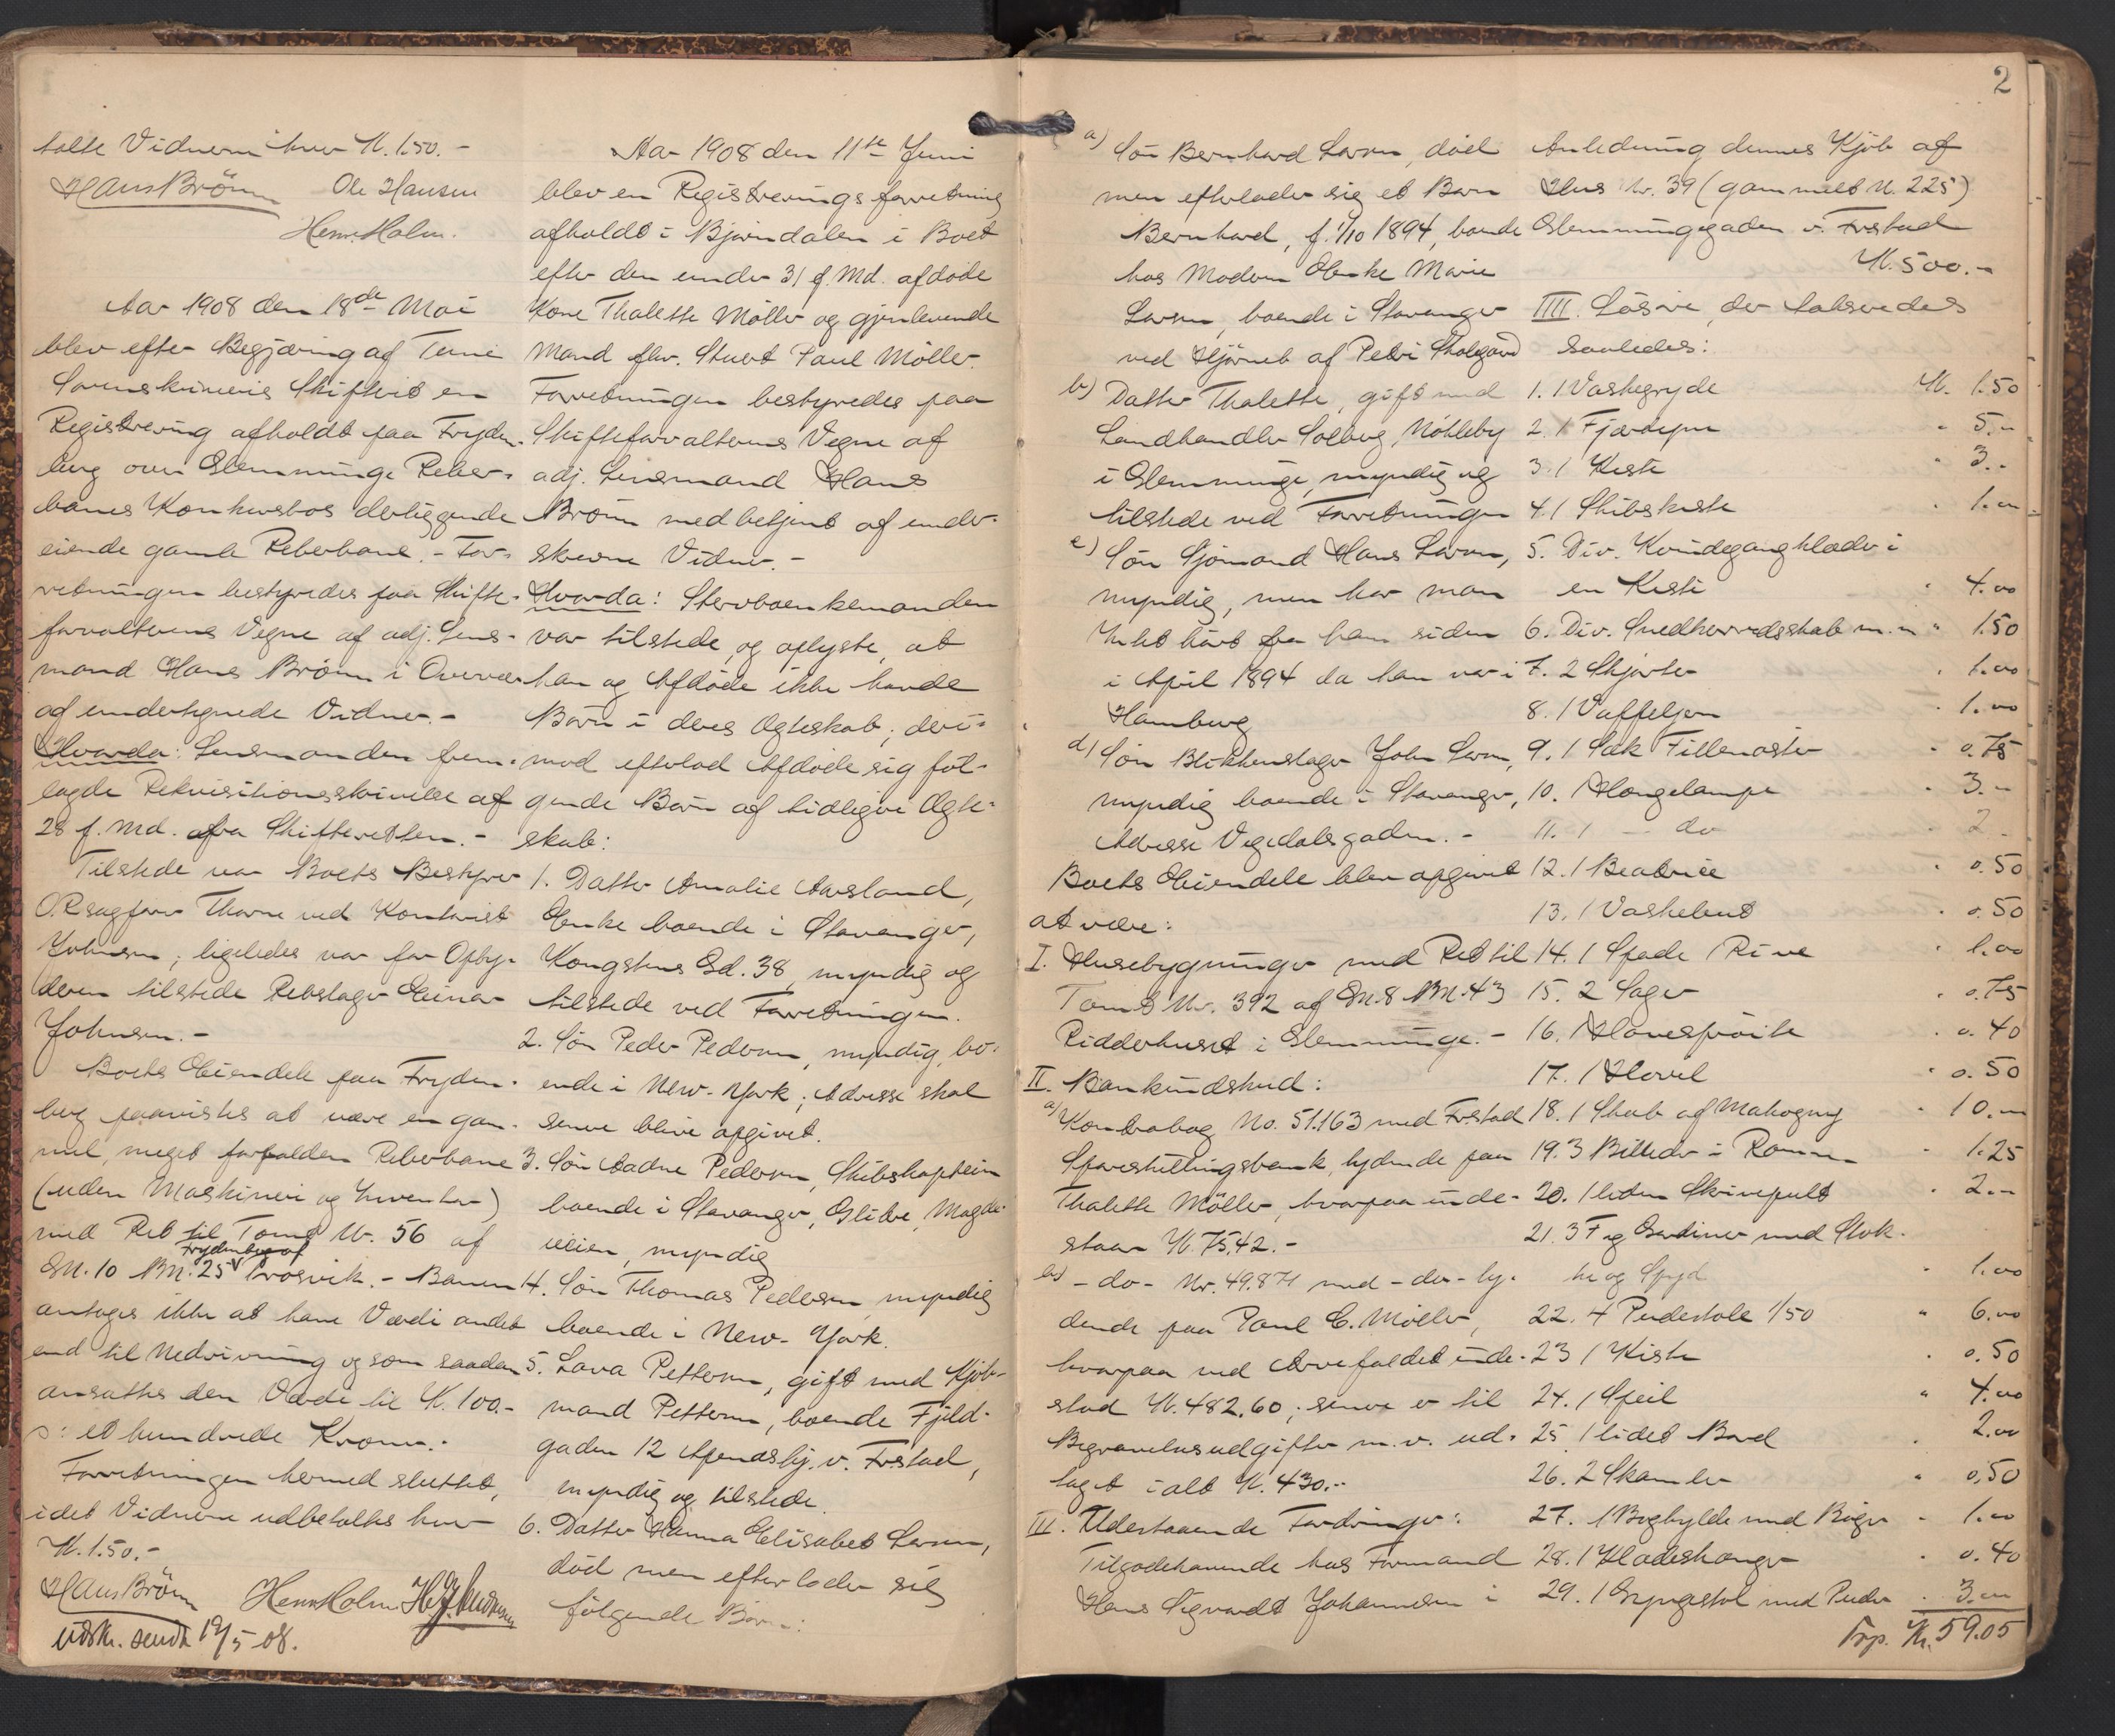 talte Vidnerne hver K. 1.50.-
Hans Brönn Ole Hansen
Henr. Holm.
Aar 1908 den 18de Mai
blev efter Begjæring af Tune
Sorenskriveris Skifteret en
Registrering afholdt paa Fryden-
berg over Glemminge Reber-
banes Konkursbos derliggende
eiende gamle Reberbane. - For-
retningen bestyredes paa Skifte-
forvalterens Vegne af adj. Lens-
mand Hans Brönn i Overvær
af undertegnede Vidner.-
Hvorda: Lensmanden frem-
lagde Rekvisitionsskrivelse af
28 f. Md. fra Skifteretten.-
Tilstede var Boets Bestyrer
O.R.sagfører Thorne ved Kontorist
Johnsen; ligeledes var for Opby-
deren tilstede Rebslager Einar
Johnsen.-
Boets Eiendele paa Fryden-
berg paavistes at være en gam-
mel, meget forfalden Reberbane
(uden Maskineri og Inventar)
med Ret til Tomt Nr. 56 af
Frydenberg af
Gn. 10 Bn. 25 Trosvik. - Banen
antoges ikke at have Værdi andet
end til Nedrivning og som saadan
ansattes den Værdi til K. 100.-
ɔ: et hundrede Kroner.-
Forretningen hermed sluttet,
idet Vidnerne udbetaltes hver
K. 1.50.-
Hans Brönn Henr. Holm
udskr. sendt 19/5-08.
Aar 1908 den 11te Juni
blev en Registreringsforretning
afholdt i Bjørndalen i Boet
efter den under 31 f. Md. afdøde
Kone Thalette Möller og gjenlevende
Mand fhv. Stuert Paul Möller.
Forretningen bestyredes paa
Skifteforvalterens Vegne af
adj. Lensmand Hans
Brönn med betjent af under-
skrevne Vidner.-
Hvorda: Stervboenkemanden
var tilstede, og oplyste, at
han og Afdøde ikke havde
Børn i deres Ægteskab; deri-
mod efterlod Afdøde sig föl-
gende Børn af tidligere Ægte-
skab:
1. Datter Amalie Aarsland,
Enke boende i Stavanger,
Kongstens Gd. 38, myndig og
tilstede ved Forretningen.
2. Sön Peder Pedersen, myndig, bo-
ende i New-York; Adresse skal
senere blive opgivet.
3. Sön Aadne Pedersen, Skibskaptein
boende i Stavanger, Østre, Magda-
veien, myndig
4. Sön Thomas Pedersen, myndig
boende i New-York.
5. Lava Pettersen, gift med Kjøb-
mand Pettersen, boende Fjeld-
gaden 12 Apenæsbj. v. Frstad,
myndig og tilstede
6. Datter Hanna Elisabet Larsen,
død men efterlader sig
følgende Børn:
2
a) Sön Bernhard Larsen, död
men efterlader sig et Barn
Bernhard, f. 1/10 1894, boende
hos Modern Enke Marie
Larsen, boende i Stavanger
ved Hjörnet af Petri Skolegård
b) Datter Thalette, gift med
Landhandler Solberg, Nöhleby
i Glemminge, myndig og
tilstede ved Forretningen
c) Sön Sjömand Hans Larsen,
myndig, men har man
Intet hört fra ham siden
i April 1894 da han var i
Hamburg
d) Sön Blikkenslager John Larsen,
myndig boende i Stavanger,
Adresse Vegedalsgaden.-
Boets Eiendele blev opgivet
at være:
I. Husebygninger med Ret til
Tomt Nr. 392 af Gn. 8 Bn. 43
Ridderhuset i Glemminge.-
II. Bankindskud:
a) Kontrabog No. 51.163 med Frstad
Sparestillingsbank, lydende paa
Thalette Möller, hvorpaa inde-
staar K. 75.42.-
b) -do- Nr. 49.874 med -do- ly-
dende paa Paul C. Möller,
hvorpaa ved Arvefaldet inde-
stod K. 482.60; senere er til
Begravelsesudgifter m.v. ud-
taget ialt K. 430.-
III. Udestaaende Fordringer:
Tilgodehavende hos Formand
Hans Sigvardt Johannesen i
Anledning dennes Kjöb af
Hus Nr. 39 (gammelt N. 225)
Glemmingegaden v. Frstad
K. 500.-
IIII. Lösöre, der taksertes
saaledes:
1. 1 Vaskegryde K. 1.50
2. 1 " 5.-
3. 1 Kiste " 3.-
4. 1 Skibskiste " 1.-
5. Div. Kvindegangklæder i
en Kiste " 4.00
6. Div. Snedkerredskab m.m " 1.50
7. 2 Skjorter " 1.00
8. 1 Vaffeljern " 1.00
9. 1 Sæk " 0.75
10. 1 Hængelampe " 3.-
11. 1 - do " 2.-
12. 1 " 0.50
13. 1 Vaskebent " 0.50
14. 1 Spade 1 Rive " 1.00
15. 2 Sager " 0.75
16. 1 Havespröite " 0.40
17. 1 Hovel " 0.50
18. 1 Skab af Mahogny " 10.-
19. 3 Billeder i Rammer " 1.25
20. 1 liden Skrivepult " 2.-
21. 3 Fag Gardiner med Stok-
ke og Spyd " 1.00
22. 4 Pudestole 1/50 " 6.00
23 1 Kiste " 0.50
24. 1 Speil " 4.00
25 1 lidet Bord " 2.00
26. 2 Skamler " 0.50
27. 1 Boghylde med Böger " 1.00
28. 1 Klædeshænger " 0.40
29. 1 Gyngestol med Puder " 3.00
Trp. Kr. 59.05